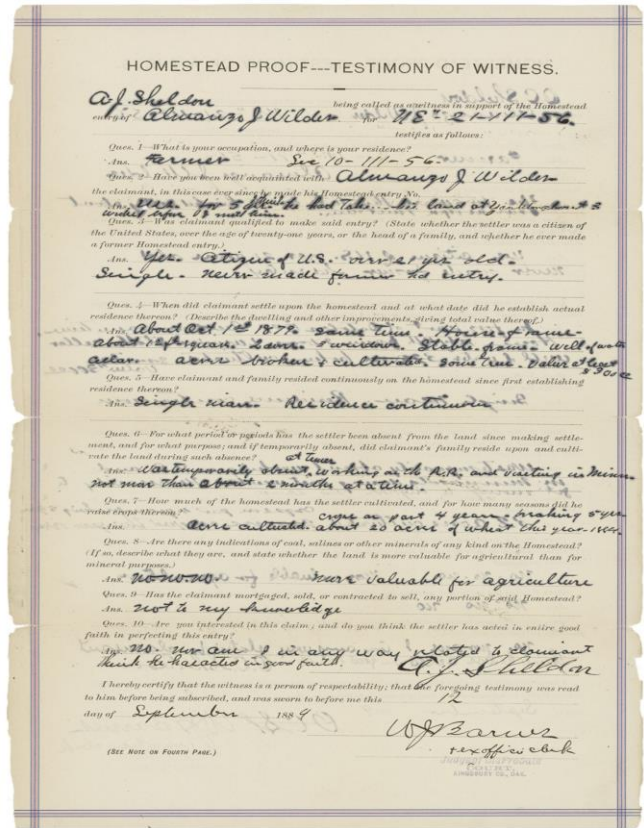 HOMESTEAD PROOF---TESTIMONY OF WITNESS.
A. J. Sheldon being called as a witness in support of the Homestead
entry of Almanzo J Wilder for NE¼ 21-111-56.
testifies as follows:
Ques. 1—What is your occupation, and where is your residence?
Ans. Farmer Sec 10-111-56.
Ques. 2—Have you been well acquainted with Almanzo J Wilder
the claimant, in this case ever since he made his Homestead entry No.
Ans. Yes. for 5 years he had his land at
before I met him.
Ques. 3—Was claimant qualified to make said entry? (State whether the settler was a citizen of
the United States, over the age of twenty-one years, or the head of a family, and whether he ever made
a former Homestead entry.)
Ans. Yes. Citizen of U.S. over 21 yrs old.
Single. never made former hd entry.
Ques. 4—When did claimant settle upon the homestead and at what date did he establish actual
residence thereon? (Describe the dwelling and other improvements, giving total value thereof.)
Ans. About Oct 1st 1879. Same time. House frame
about 12 ft square. 2 doors. window. Stable frame. Well of water
acres broken & cultivated. Some trees. Value at least
Ques. 5—Have claimant and family resided continuously on the homestead since first establishing
residence thereon?
Ans. Single man. Residence continuous
Ques. 6—For what period or periods has the settler been absent from the land since making settle-
ment, and for what purpose; and if temporarily absent, did claimant's family reside upon and culti-
vate the land during such absence?
at times
Ans. Was temporarily absent, working on the R.R. and visiting in Minn.
not more than about 2 months at a time.
Ques. 7—How much of the homestead has the settler cultivated, and for how many seasons did he
raise crops thereon?
crops on part 4 years. breaking 5 yrs
Ans. acres cultivated. about 20 acres of wheat this year. 1884.
Ques. 8—Are there any indications of coal, salines or other minerals of any kind on the Homestead?
(If so, describe what they are, and state whether the land is more valuable for agricultural than for
mineral purposes.)
Ans. no. no. no. more valuable for agriculture
Ques. 9—Has the claimant mortgaged, sold, or contracted to sell, any portion of said Homestead?
Ans. not to my knowledge
Ques. 10—Are you interested in this claim; and do you think the settler has acted in entire good
faith in perfecting this entry?
Ans. no. nor am I in any way related to claimant
think he has acted in good faith. A. J. Sheldon
I hereby certify that the witness is a person of respectability; that the foregoing testimony was read
to him before being subscribed, and was sworn to before me this 12
day of September 1884
W J Barnes
& ex officio clerk
(SEE NOTE ON FOURTH PAGE.)
KINGSBURY CO., DAK.